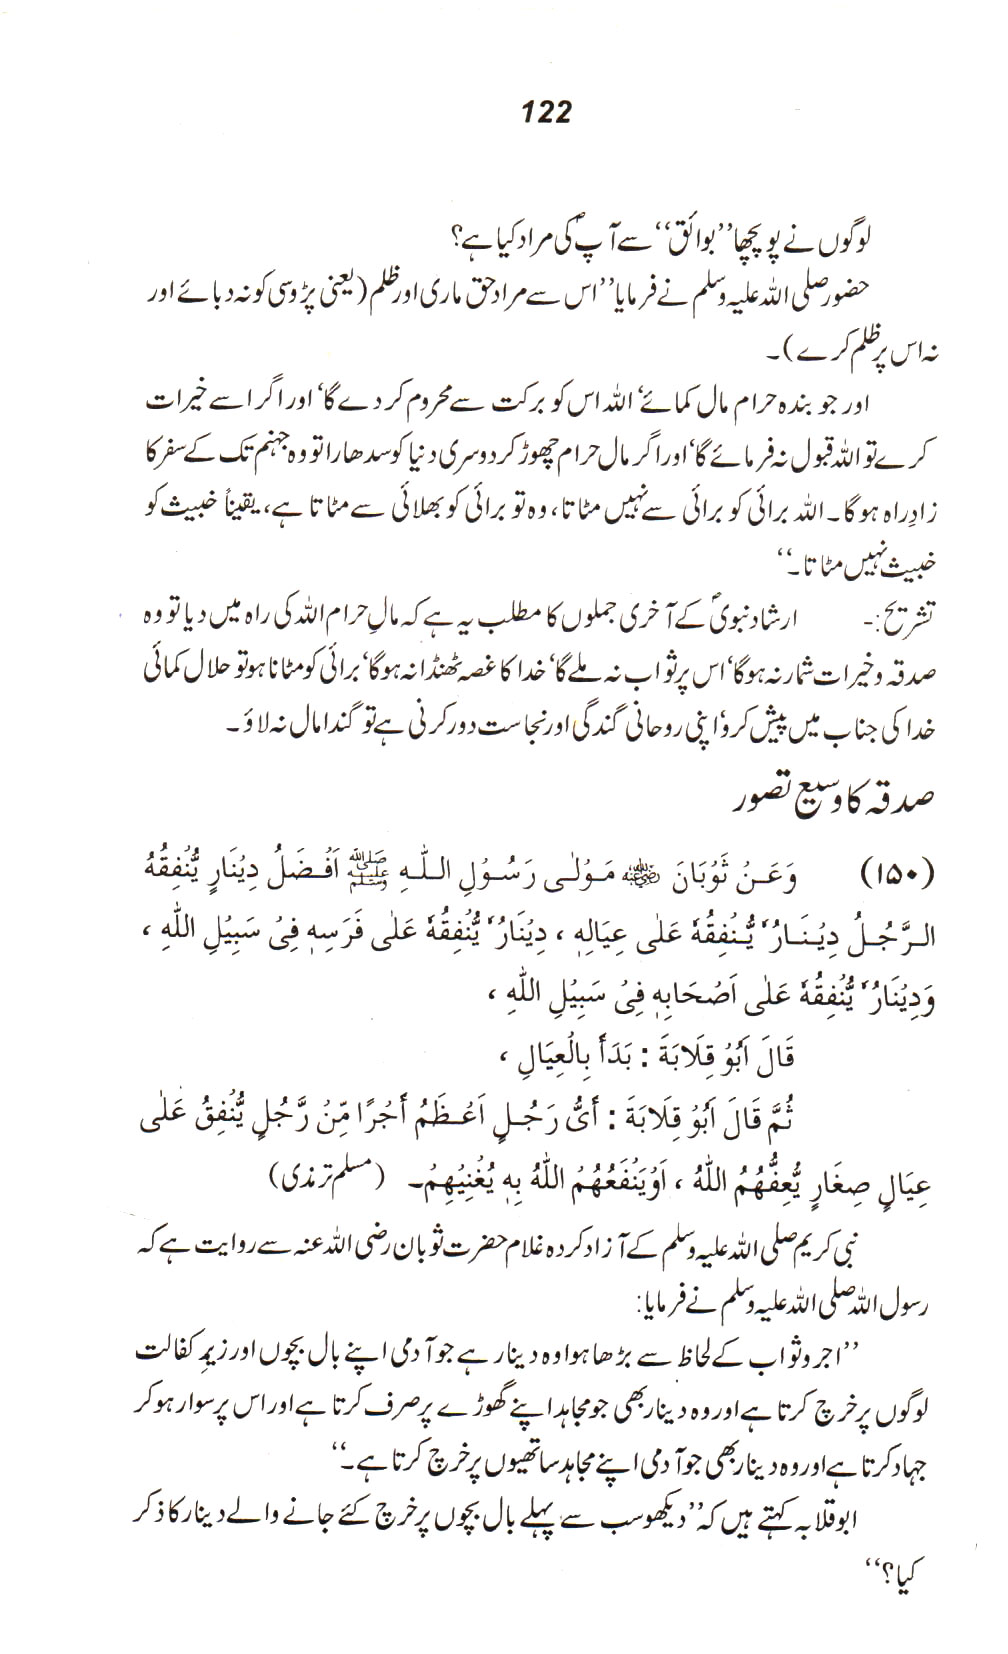 122
لوگوں نے پوچھا ’’بوائق‘‘ سے آپؐ کی مراد کیا ہے؟
حضور صلی اللہ علیہ وسلم نے فرمایا ’’اس سے مراد حق ماری اور ظلم (یعنی پڑوسی کو نہ دبائے اور
نہ اس پر ظلم کرے)۔
اور جو بندہ حرام مال کمائے‘ اللہ اس کو برکت سے محروم کر دے گا‘ اور اگر اسے خیرات
کرے تو اللہ قبول نہ فرمائے گا‘ اور اگر مال حرام چھوڑ کر دوسری دنیا کو سدھارا تو وہ جہنم تک کے سفر کا
زادِراہ ہوگا۔ اللہ برائی کو برائی سے نہیں مٹاتا، وہ تو برائی کو بھلائی سے مٹاتا ہے، یقیناً خبیث کو
خبیث نہیں مٹاتا۔‘‘
تشریح:- ارشاد نبویؐ کے آخری جملوں کا مطلب یہ ہے کہ مالِ حرام اللہ کی راہ میں دیا تو وہ
صدقہ وخیرات شمار نہ ہوگا‘ اس پر ثواب نہ ملے گا‘ خدا کا غصہ ٹھنڈا نہ ہوگا‘ برائی کو مٹانا ہو تو حلال کمائی
خدا کی جناب میں پیش کرو‘ اپنی روحانی گندگی اور نجاست دور کرنی ہے تو گندا مال نہ لاؤ۔
صدقہ کا وسیع تصور
(۱۵۰) وَعَنْ ثَوْبَانَ رضي الله عنه مَوْلٰى رَسُوْلِ اللّٰهِ ﷺ اَفْضَلُ دِيْنَارٍ يُّنْفِقُهُ
الرَّجُلُ دِيْنَارٌ يُّنْفِقُهٗ عَلٰى عِيَالِهٖ ، دِيْنَارٌ يُّنْفِقُهٗ عَلٰى فَرَسِهٖ فِىْ سَبِيْلِ اللّٰهِ ،
وَدِيْنَارٌ يُّنْفِقُهٗ عَلٰى اَصْحَابِهٖ فِىْ سَبِيْلِ اللّٰهِ ،
قَالَ اَبُوْ قِلَابَةَ : بَدَأَ بِالْعِيَالِ ،
ثُمَّ قَالَ اَبُوْ قِلَابَةَ : أَىُّ رَجُلٍ اَعْظَمُ أَجْرًا مِّنْ رَّجُلٍ يُّنْفِقُ عَلٰى
عِيَالٍ صِغَارٍ يُّعِفُّهُمُ اللّٰهُ ، اَوْيَنْفَعُهُمُ اللّٰهُ بِهٖ يُغْنِيْهِمْ۔ (مسلم ترمذی)
نبی کریم صلی اللہ علیہ وسلم کے آزاد کردہ غلام حضرت ثوبان رضی اللہ عنہ سے روایت ہے کہ
رسول اللہ صلی اللہ علیہ وسلم نے فرمایا:
’’اجر و ثواب کے لحاظ سے بڑھا ہوا وہ دینار ہے جو آدمی اپنے بال بچوں اور زیرِ کفالت
لوگوں پر خرچ کرتا ہے اور وہ دینار بھی جو مجاہد اپنے گھوڑے پر صرف کرتا ہے اور اس پر سوار ہو کر
جہاد کرتا ہے اور وہ دینار بھی جو آدمی اپنے مجاہد ساتھیوں پر خرچ کرتا ہے۔‘‘
ابوقلابہ کہتے ہیں کہ ’’دیکھو سب سے پہلے بال بچوں پر خرچ کئے جانے والے دینار کا ذکر
کیا؟‘‘